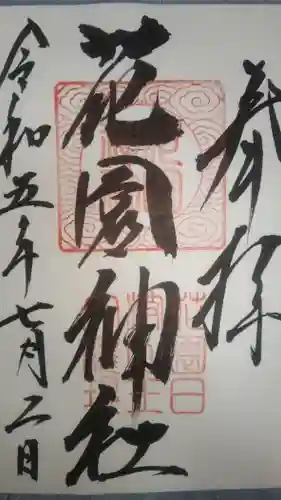 奉拝
花園神社
令和五年七月二日